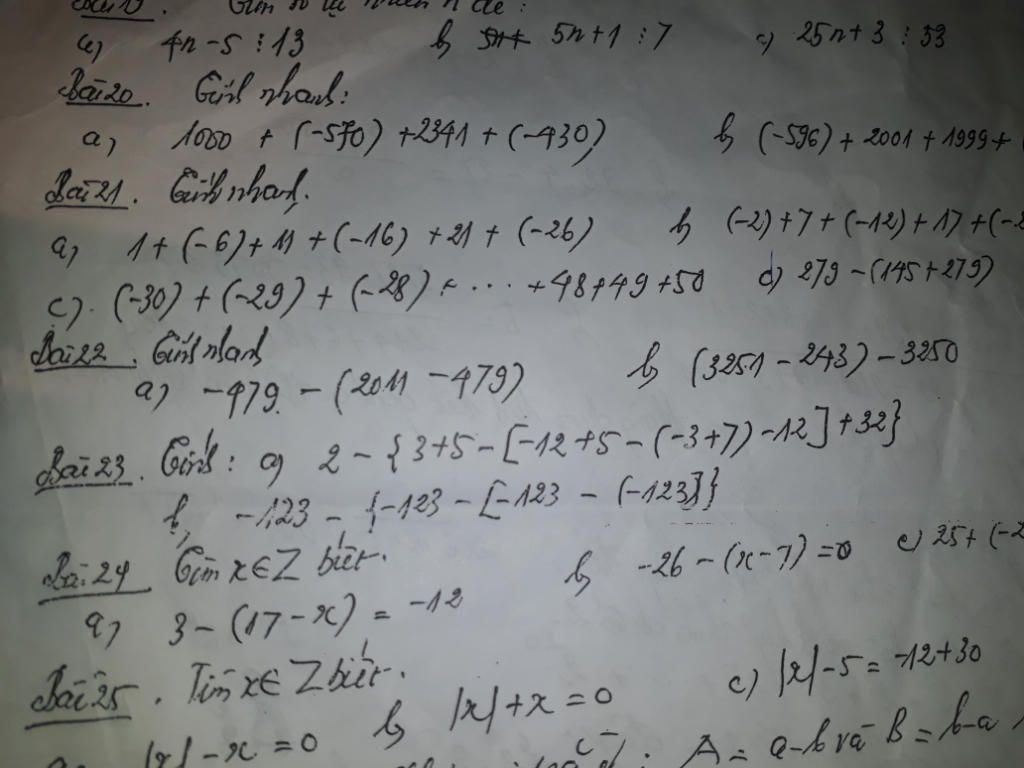 Bài 19. Tìm số tự nhiên n để:
a) 4n-5 ⋮ 13 b) 5n+1 ⋮ 7 c) 25n+3 ⋮ 53
Bài 20. Tính nhanh:
a) 1080 + (-570) + 2341 + (-430) b) (-596) + 2001 + 1999 +
Bài 21. Tính nhanh.
a) 1 + (-6) + 11 + (-16) + 21 + (-26) b) (-2) + 7 + (-12) + 17 + (-2
c) (-30) + (-29) + (-28) + ... + 48 + 49 + 50 d) 279 - (145 + 279)
Bài 22. Tính nhanh
a) -479 - (2011 - 479) b) (3251 - 243) - 3250
Bài 23. Tính: a) 2 - {3+5 - [-12+5 - (-3+7) -12] + 32}
b, -123 - {-123 - [-123 - (-123)]}
Bài 24 Tìm x ∈ Z biết.
a, 3 - (17 - x) = -12 b) -26 - (x-7) = 0 c) 25 + (-2
Bài 25. Tìm x ∈ Z biết.
|x| - x = 0 b) |x| + x = 0 c) |x| - 5 = -12 + 30
A = a-b và B = b-a